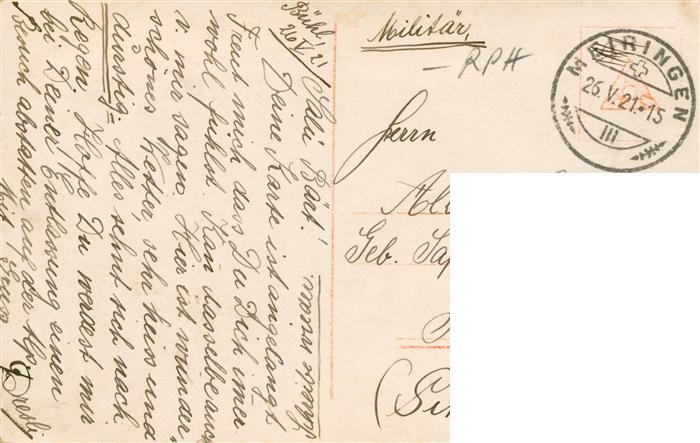 Bühl,
26.V.21
Sali Bärt!
Deine Karte ist angelangt
Freut mich dass Du Dich imer
wohl fühlst. Kan dasselbe auch
v. mir sagen. Hier ist wunder-
schönes Wetter sehr heiss und
durstig. Alles sehnt sich nach
Regen. Hoffe Du werdest mir
bei Deiner Entlassung einen
Besuch abstatten auf der Alp
Mit Gruss
Militär,
- RPH
MEIRINGEN
26.V.21.-15
III
Herrn
Geb.